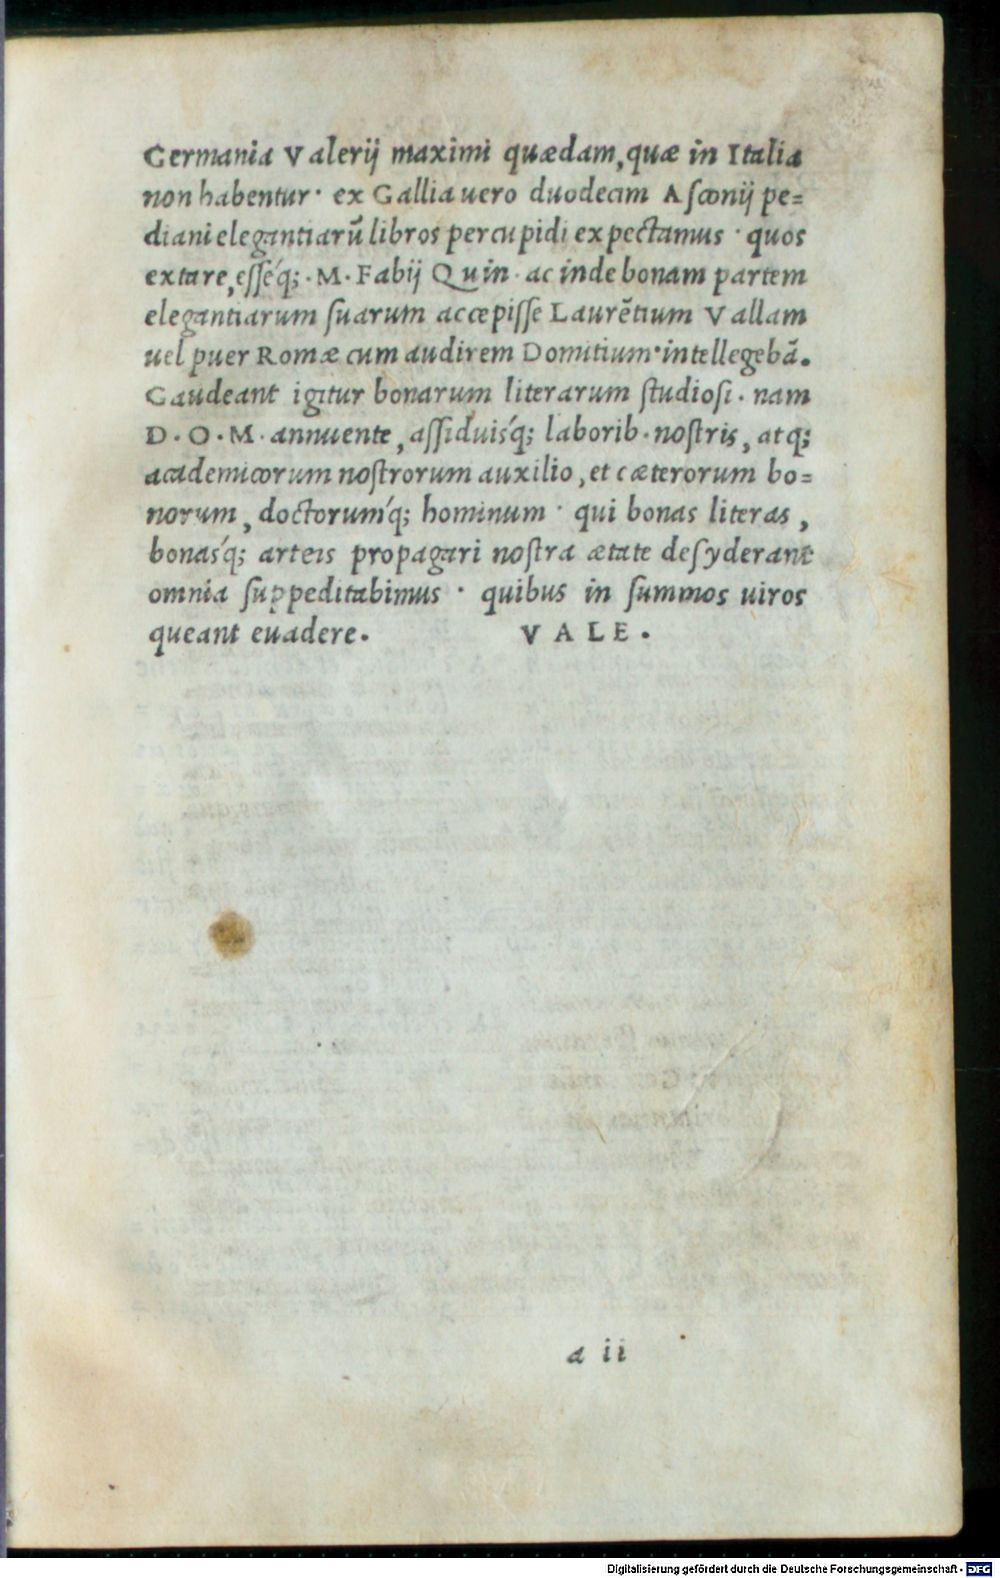 Germania Valerij maximi quædam, quæ in Italia
non habentur · ex Gallia uero duodecim Asconij pe=
diani elegantiarū libros percupidi expectamus · quos
extare, esséq; · M · Fabij Quin · ac inde bonam partem
elegantiarum suarum accœpisse Laurẽtium Vallam
uel puer Romæ cum audirem Domitium · intellegebā.
Gaudeant igitur bonarum literarum studiosi · nam
D · O · M · annuente, assiduisq́; laborib · nostris, atq;
academicorum nostrorum auxilio, et cæterorum bo=
norum, doctorumq́; hominum · qui bonas literas,
bonasq́; arteis propagari nostra ætate desyderant
omnia suppeditabimus · quibus in summos uiros
queant euadere. VALE.
a ii
Digitalisierung gefördert durch die Deutsche Forschungsgemeinschaft - DFG